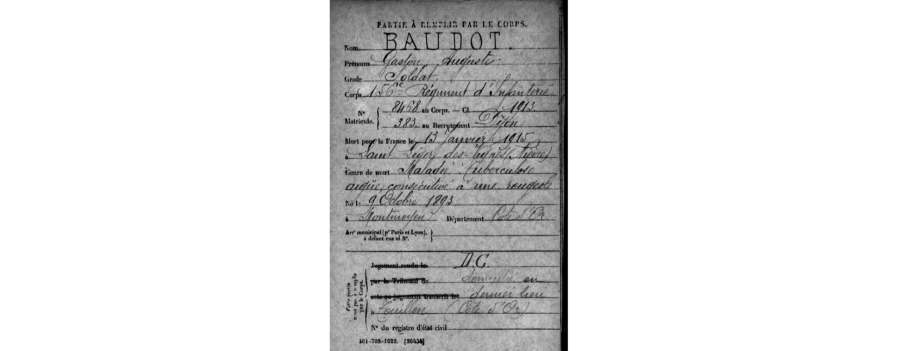 PARTIE À REMPLIR PAR LE CORPS.
Nom BAUDOT.
Prénoms Gaston Auguste
Grade Soldat
Corps 156e Régiment d'Infanterie
N° Matricule. { 8468 au Corps. — Cl 1913
383 au Recrutement Dijon
Mort pour la France le 13 janvier 1915
à Saint Léger des Vignes (Nièvre)
Genre de mort Maladie Tuberculose
aigüe, consécutive à une rougeole
Né le 9 Octobre 1893
à Montmoyen Département Côte d'Or
Arrt municipal (pr Paris et Lyon), à défaut rue et N°. {
Cette partie n'est pas à remplir par le Corps.
Jugement rendu le D.C.
par le Tribunal de domicilié en
acte ou jugement transcrit le dernier lieu
à (Côte d'Or)
N° du registre d'état civil
101-708-1922. [26434]